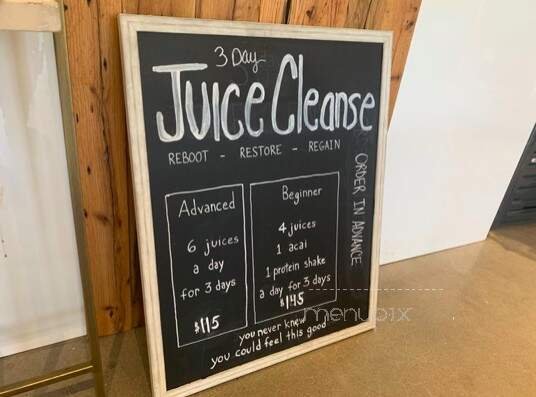 3 Day
Juice Cleanse
REBOOT - RESTORE - REGAIN
ORDER IN ADVANCE
Advanced
6 juices
a day
for 3 days
$115
Beginner
4 juices
1 acai
1 protein shake
a day for 3 days
$145
you never knew
you could feel this good
menupix